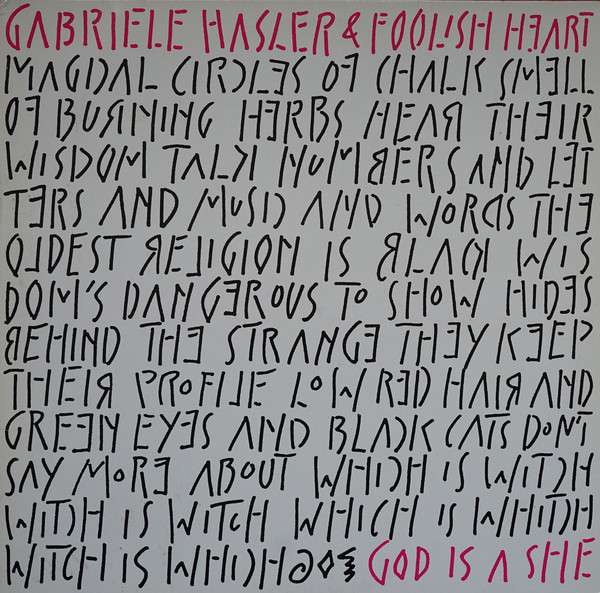 GABRIELE HASLER & FOOLISH HEART
MAGICAL CIRCLES OF CHALK SMELL
OF BURNING HERBS HEAR THEIR
WISDOM TALK NUMBERS AND LET
TERS AND MUSIC AND WORDS THE
OLDEST RELIGION IS BLACK WIS
DOM'S DANGEROUS TO SHOW HIDES
BEHIND THE STRANGE THEY KEEP
THEIR PROFILE LOW RED HAIR AND
GREEN EYES AND BLACK CATS DON'T
SAY MORE ABOUT WHICH IS WITCH
WITCH IS WITCH WHICH IS WHITCH
WITCH IS WHICH GOD IS A SHE